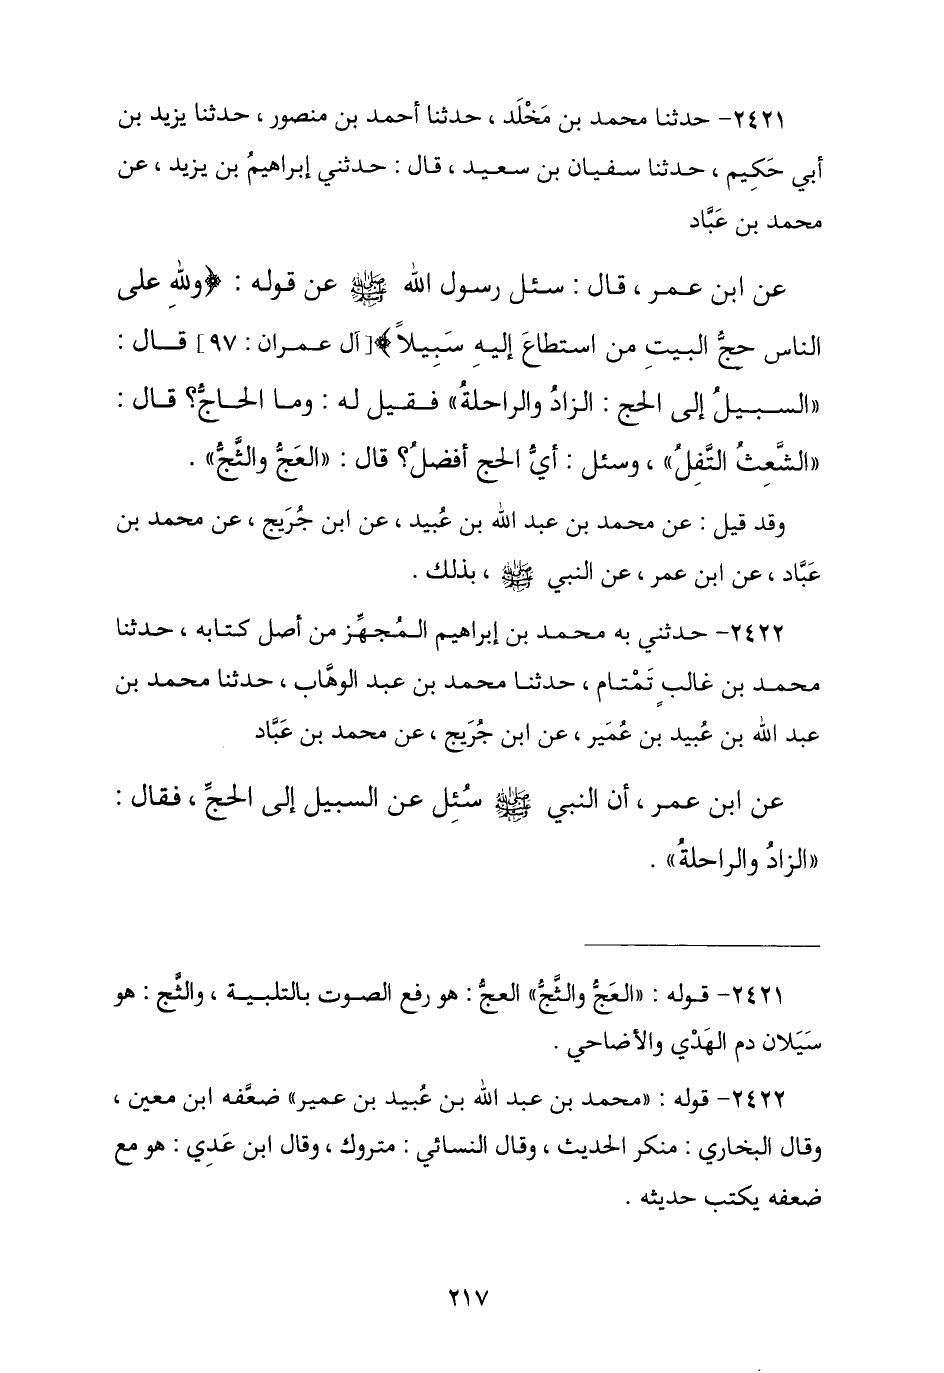 ٢٤٢١- حدثنا محمد بن مَخْلَد ، حدثنا أحمد بن منصور ، حدثنا يزيد بن
أبي حَكِيم ، حدثنا سفيان بن سعيد ، قال : حدثني إبراهيمُ بن يزيد ، عن
محمد بن عَبَّاد
عن ابن عمر ، قال : سئل رسول الله ﷺ عن قوله : ﴿وللهِ على
الناس حجُّ البيتِ من استطاعَ إليهِ سَبِيلاً﴾[آل عمران : ٩٧] قال :
«السبيلُ إلى الحج : الزادُ والراحلةُ» فقيل له : وما الحاجُّ؟ قال :
«الشَّعِثُ التَّفِلُ» ، وسئل : أيُّ الحج أفضلُ؟ قال : «العَجُّ والثَّجُّ» .
وقد قيل : عن محمد بن عبد الله بن عُبيد ، عن ابن جُرَيج ، عن محمد بن
عَبَّاد ، عن ابن عمر ، عن النبي ﷺ ، بذلك .
٢٤٢٢- حدثني به محمد بن إبراهيم المُجهِّز من أصل كتابه ، حدثنا
محمد بن غالبٍ تَمْتام ، حدثنا محمد بن عبد الوهَّاب ، حدثنا محمد بن
عبد الله بن عُبيد بن عُمَير ، عن ابن جُرَيج ، عن محمد بن عَبَّاد
عن ابن عمر ، أن النبي ﷺ سُئِل عن السبيل إلى الحجِّ ، فقال :
«الزادُ والراحلةُ» .
٢٤٢١- قوله : «العَجُّ والثَّجُّ» العجُّ : هو رفع الصوت بالتلبية ، والثَّج : هو
سَيَلان دم الهَدْي والأضاحي .
٢٤٢٢- قوله : «محمد بن عبد الله بن عُبيد بن عمير» ضعَّفه ابن معين ،
وقال البخاري : منكر الحديث ، وقال النسائي : متروك ، وقال ابن عَدِي : هو مع
ضعفه يكتب حديثه .
٢١٧